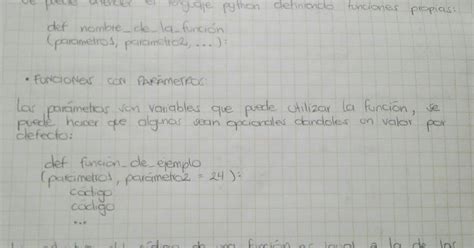 se puede extender el lenguaje python definiendo funciones propias:
def nombre_de_la_función
(parámetro1, parámetro2, ...):
• FUNCIONES CON PARÁMETROS:
Las parámetros son variables que puede utilizar la función, se
puede hacer que algunos sean opcionales dandoles un valor por
defecto:
def función_de_ejemplo
(parámetro1, parámetro2 = 24):
código
código
...
de una función es igual a la de las